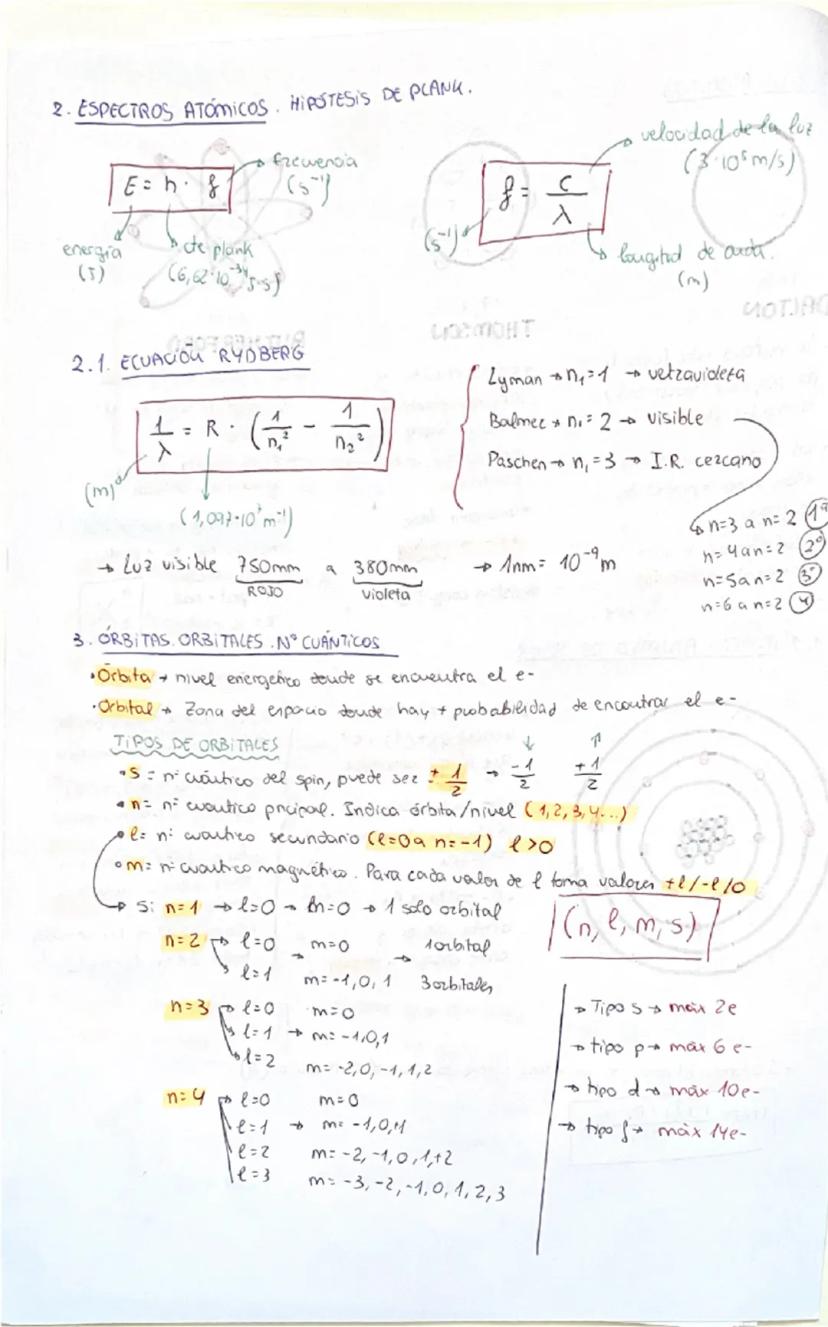 2. ESPECTROS ATÓMICOS. HIPÓTESIS DE PLANK.
E = h · f
frecuencia
(s⁻¹)
energía
(J)
cte plank
(6,62·10⁻³⁴ J·s)
f = c / λ
velocidad de la luz
(3·10⁸ m/s)
(s⁻¹)
longitud de onda.
(m)
2.1. ECUACIÓN RYDBERG
1/λ = R · (1/n₁² - 1/n₂²)
(m)
(1,097·10⁷ m⁻¹)
Lyman → n₁=1 → ultravioleta
Balmer → n₁=2 → visible
Paschen → n₁=3 → I.R. cercano
n=3 a n=2 1ª
n=4 a n=2 2ª
n=5 a n=2 3ª
n=6 a n=2 4
→ Luz visible 750mm a 380mm → 1nm = 10⁻⁹ m
ROJO violeta
3. ÓRBITAS. ORBITALES. Nº CUÁNTICOS
· Órbita → nivel energético donde se encuentra el e-
· Orbital → Zona del espacio donde hay + probabilidad de encontrar el e-
TIPOS DE ORBITALES ↓ ↑
· s = nº cuántico del spin, puede ser ± 1/2 → -1/2 +1/2
· n = nº cuántico pncipal. Indica órbita/nivel (1,2,3,4...)
· l = nº cuántico secundario (l=0 a n=-1) l>0
· m = nº cuántico magnético. Para cada valor de l toma valores +l/-l/0
Si n=1 → l=0 → m=0 → 1 solo orbital
(n, l, m, s)
n=2 → l=0 m=0 → 1 orbital
l=1 m=-1,0,1 3 orbitales
n=3 → l=0 m=0
l=1 → m=-1,0,1
l=2 m=-2,0,-1,1,2
n=4 → l=0 m=0
l=1 → m=-1,0,+1
l=2 m=-2,-1,0,1,+2
l=3 m=-3,-2,-1,0,1,2,3
→ Tipo s → máx 2e
→ tipo p → máx 6 e-
→ tipo d → máx 10e-
→ tipo f → máx 14e-